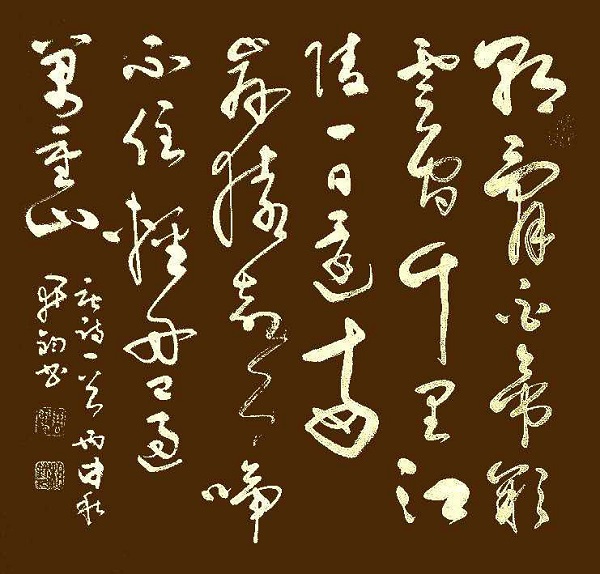 朝辭白帝彩
雲間千里江
陵一日還兩
岸猿聲啼
不住輕舟已過
萬重山
唐詩一首